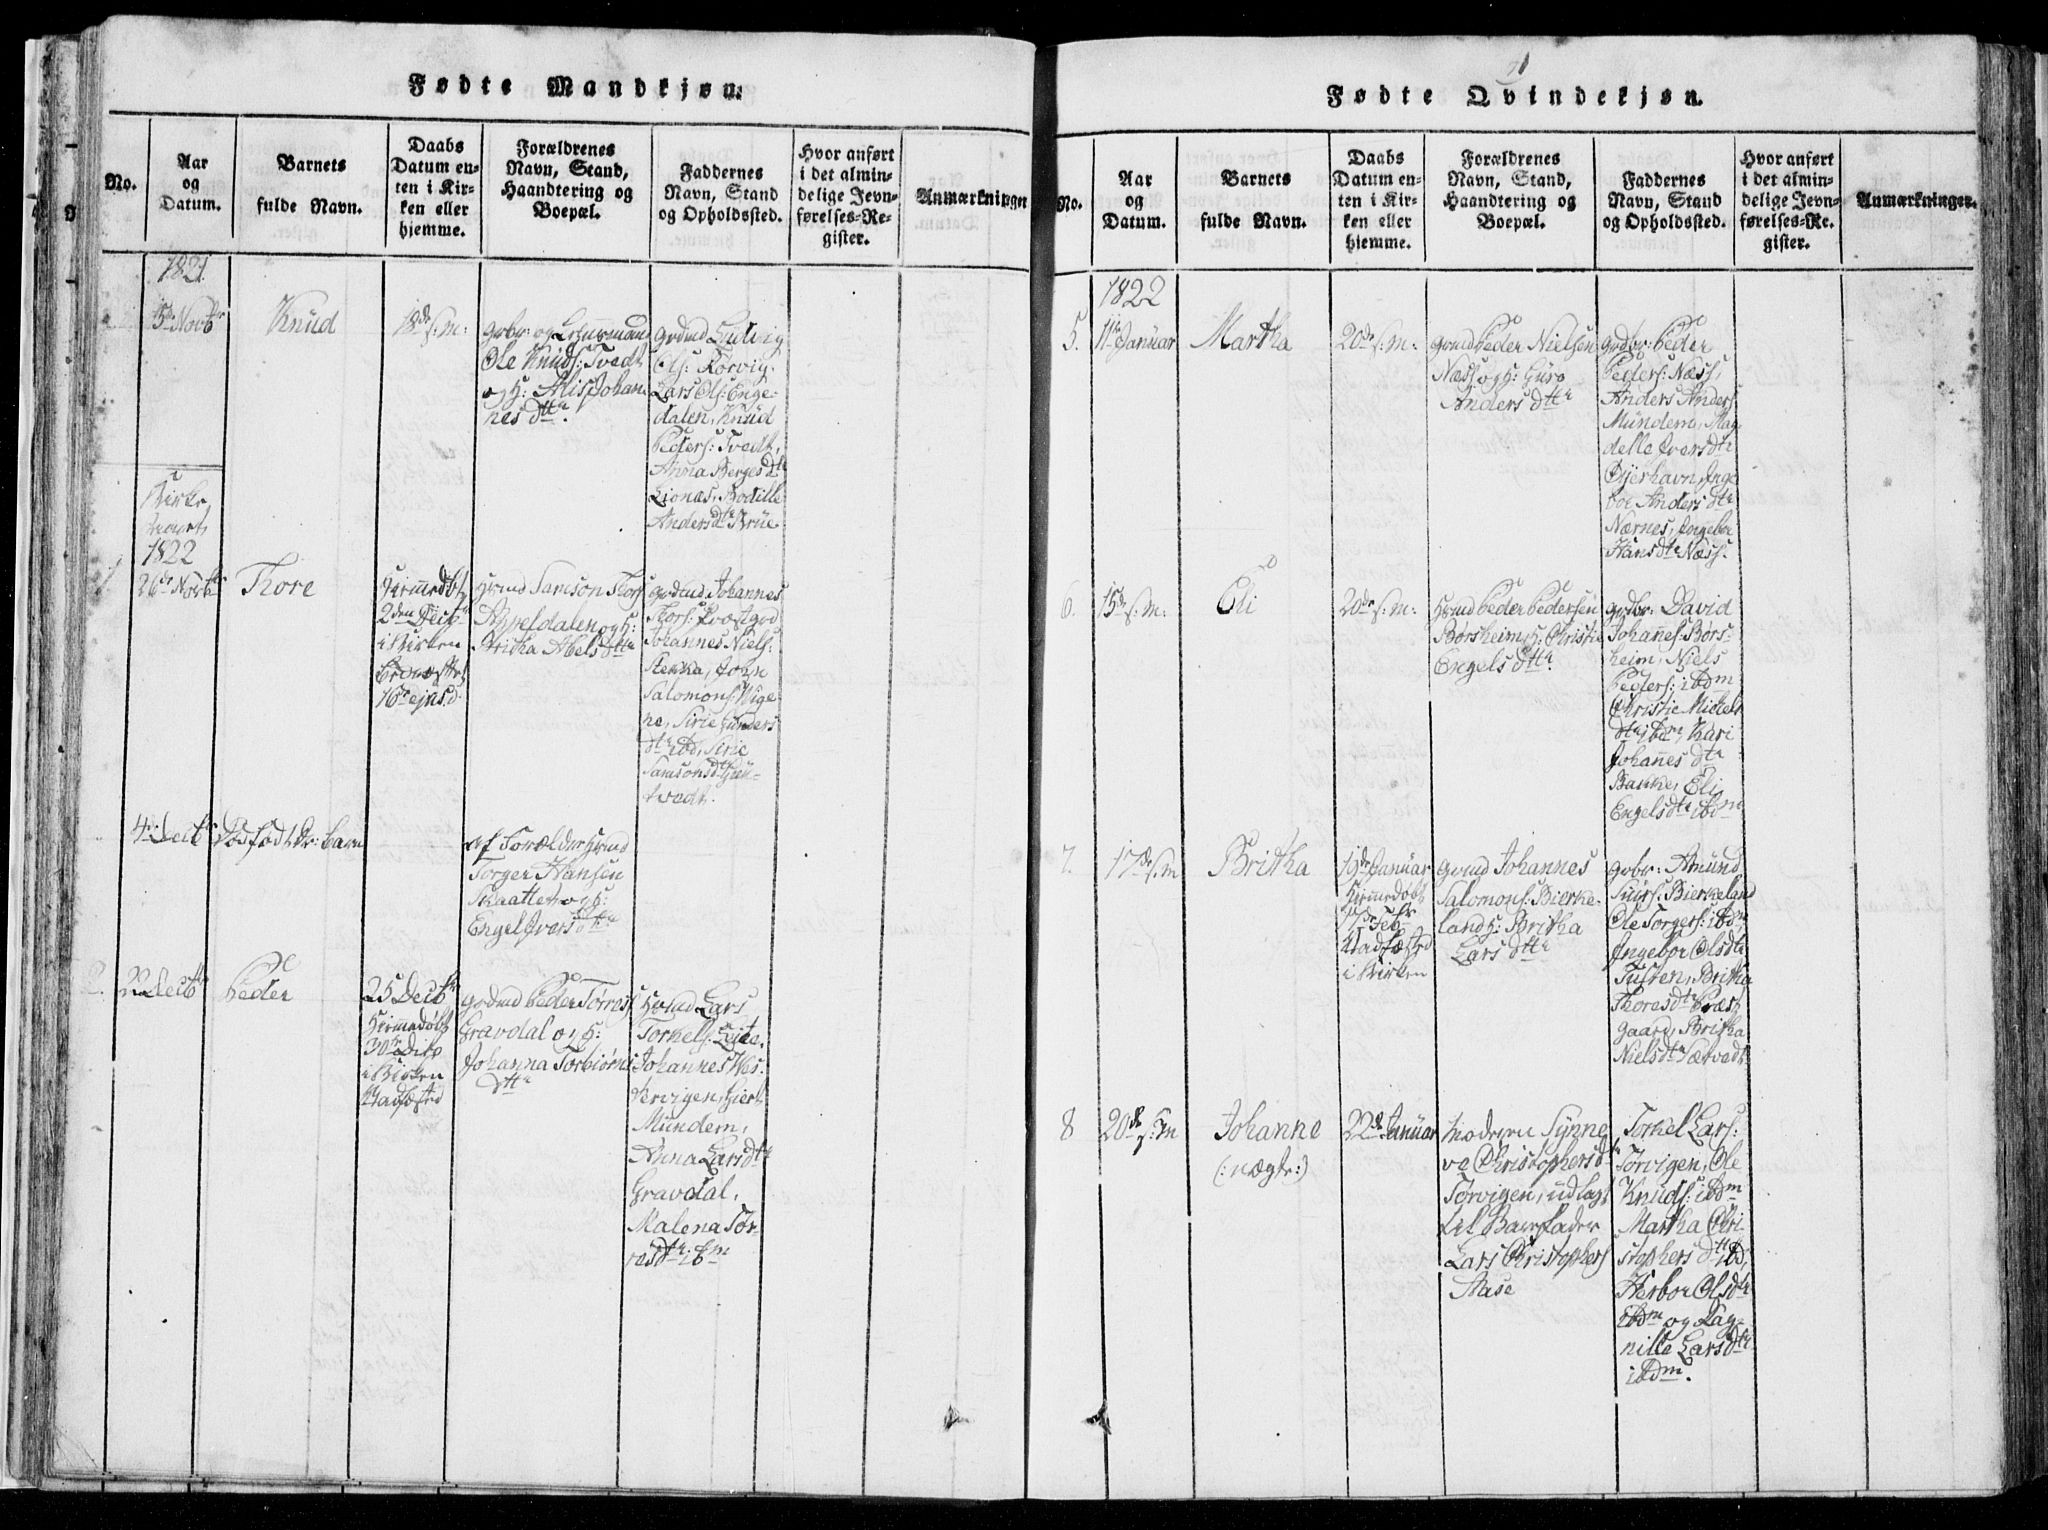 Fødte Mandkjøn.
No.
Aar
og
Datum.
Barnets
fulde Navn.
Daabs
Datum en-
ten i Kir-
ken eller
hjemme.
Forældrenes
Navn, Stand,
Haandtering og
Boepæl.
Faddernes
Navn, Stand
og Opholdssted.
Hvor anført
i det almin-
delige Jevn-
førelses-Re-
gister.
Anmærkninger
1821
15de Novbr
Knud
18de s: m:
Ole Knuds: Tvedt
og H: Alis Johan
nes dttr.
grdmd Ludvig
Ols: Rörvig.
Lars Ols: Enge-
dalen, Knud
Peders: Tvedt,
Anna Berges dtr
Lionæs, Bodille
Anders dtr Krüe
Kirke
1822
1
26de Novbr
Thore
Hiemedøbt
2den Decbr
i Kirken
16de ejusd.
Hmd Samson Thors
Appeldalen og H:
Britha Abels dttr
grdmd Johannes
Thors: Præstgrd
Johannes Niels:
Sterka, John
Salomons: Vige-
ne, Sirie Gunders
dtr ibd, Sirie
Samsons dtr
tvedt.
4de Decbr
Dødfødt Dr: barn
af Forælder Hmd
Torger Hansen
Skaattet og H:
Engel Ivers dttr
2.
22 Decbr
Peder
25 Decbr
Hiemedøbt
30te dito
i Kirken
Stadfæsted
grdmd Peder Törres
Gravdal og H:
Johanna Torbiörns
dttr
Hmd Lars
Torkels: Leite.
Johannes Wes-
vervigen, Giert
Mundem,
Anna Lars dtr
Gravdal,
Malena Tör-
res dtr ibm
Fødte Qvindekjøn.
No.
Aar
og
Datum.
Barnets
fulde Navn.
Daabs
Datum en-
ten i Kir-
ken eller
hjemme.
Forældrenes
Navn, Stand,
Haandtering og
Boepæl.
Faddernes
Navn, Stand
og Opholdssted.
Hvor anført
i det almin-
delige Jevn-
førelses-Re-
gister.
Anmærkninger.
1822
5.
11te Januar
Martha
20de s: m:
grmd Peder Nielsen
Næss og H: Guro
Anders dttr
grdbr: Peder
Peders: Næss,
Anders Anders
Mundem, Mag
delle Ivers dtr
Öyerhavn, Inge
bor Anders dtr
Nærnes, Ingebor
Hans dtr Næss.
6.
15de s: m:
Eli
20de s: m:
Hmd Peder Pedersen
Børsheim H: Christie
Engels dttr
grdbr: David
Johannes: Børs-
heim, Niels
Peders: ibdm
Christie Mickels
dtr ibdm, Kari
Johannes dtr
Bakke, Eli
Engels dtr ibdm
7.
17de s: m
Britha
19de Januar
Hiemedøbt
17de Febr
Stadfæsted
i Kirken
grmd Johannes
Salomons: Bierke-
land H: Britha
Lars dttr
grbr: Amund
Siurs: Bierkeland
Ole Torgers: ibdm,
Ingebor Ols dtr
Tuften, Britha
Thores dtr Præst
gaard, Britha
Niels dtr Sætvedt
8
20de s: m
Johanne
(: uægte :)
22de Januar
Moderen Synne
ve Christophers dtr
Torvigen, udlagt
til Barnfader
Lars Christophers
Aase
Torkel Lars:
Torvigen, Ole
Knuds: ibdm
Martha Chri-
stophers dttr ibd,
Herbor Ols dtr
ibdm og Rag-
nille Lars dtr
ibdm.